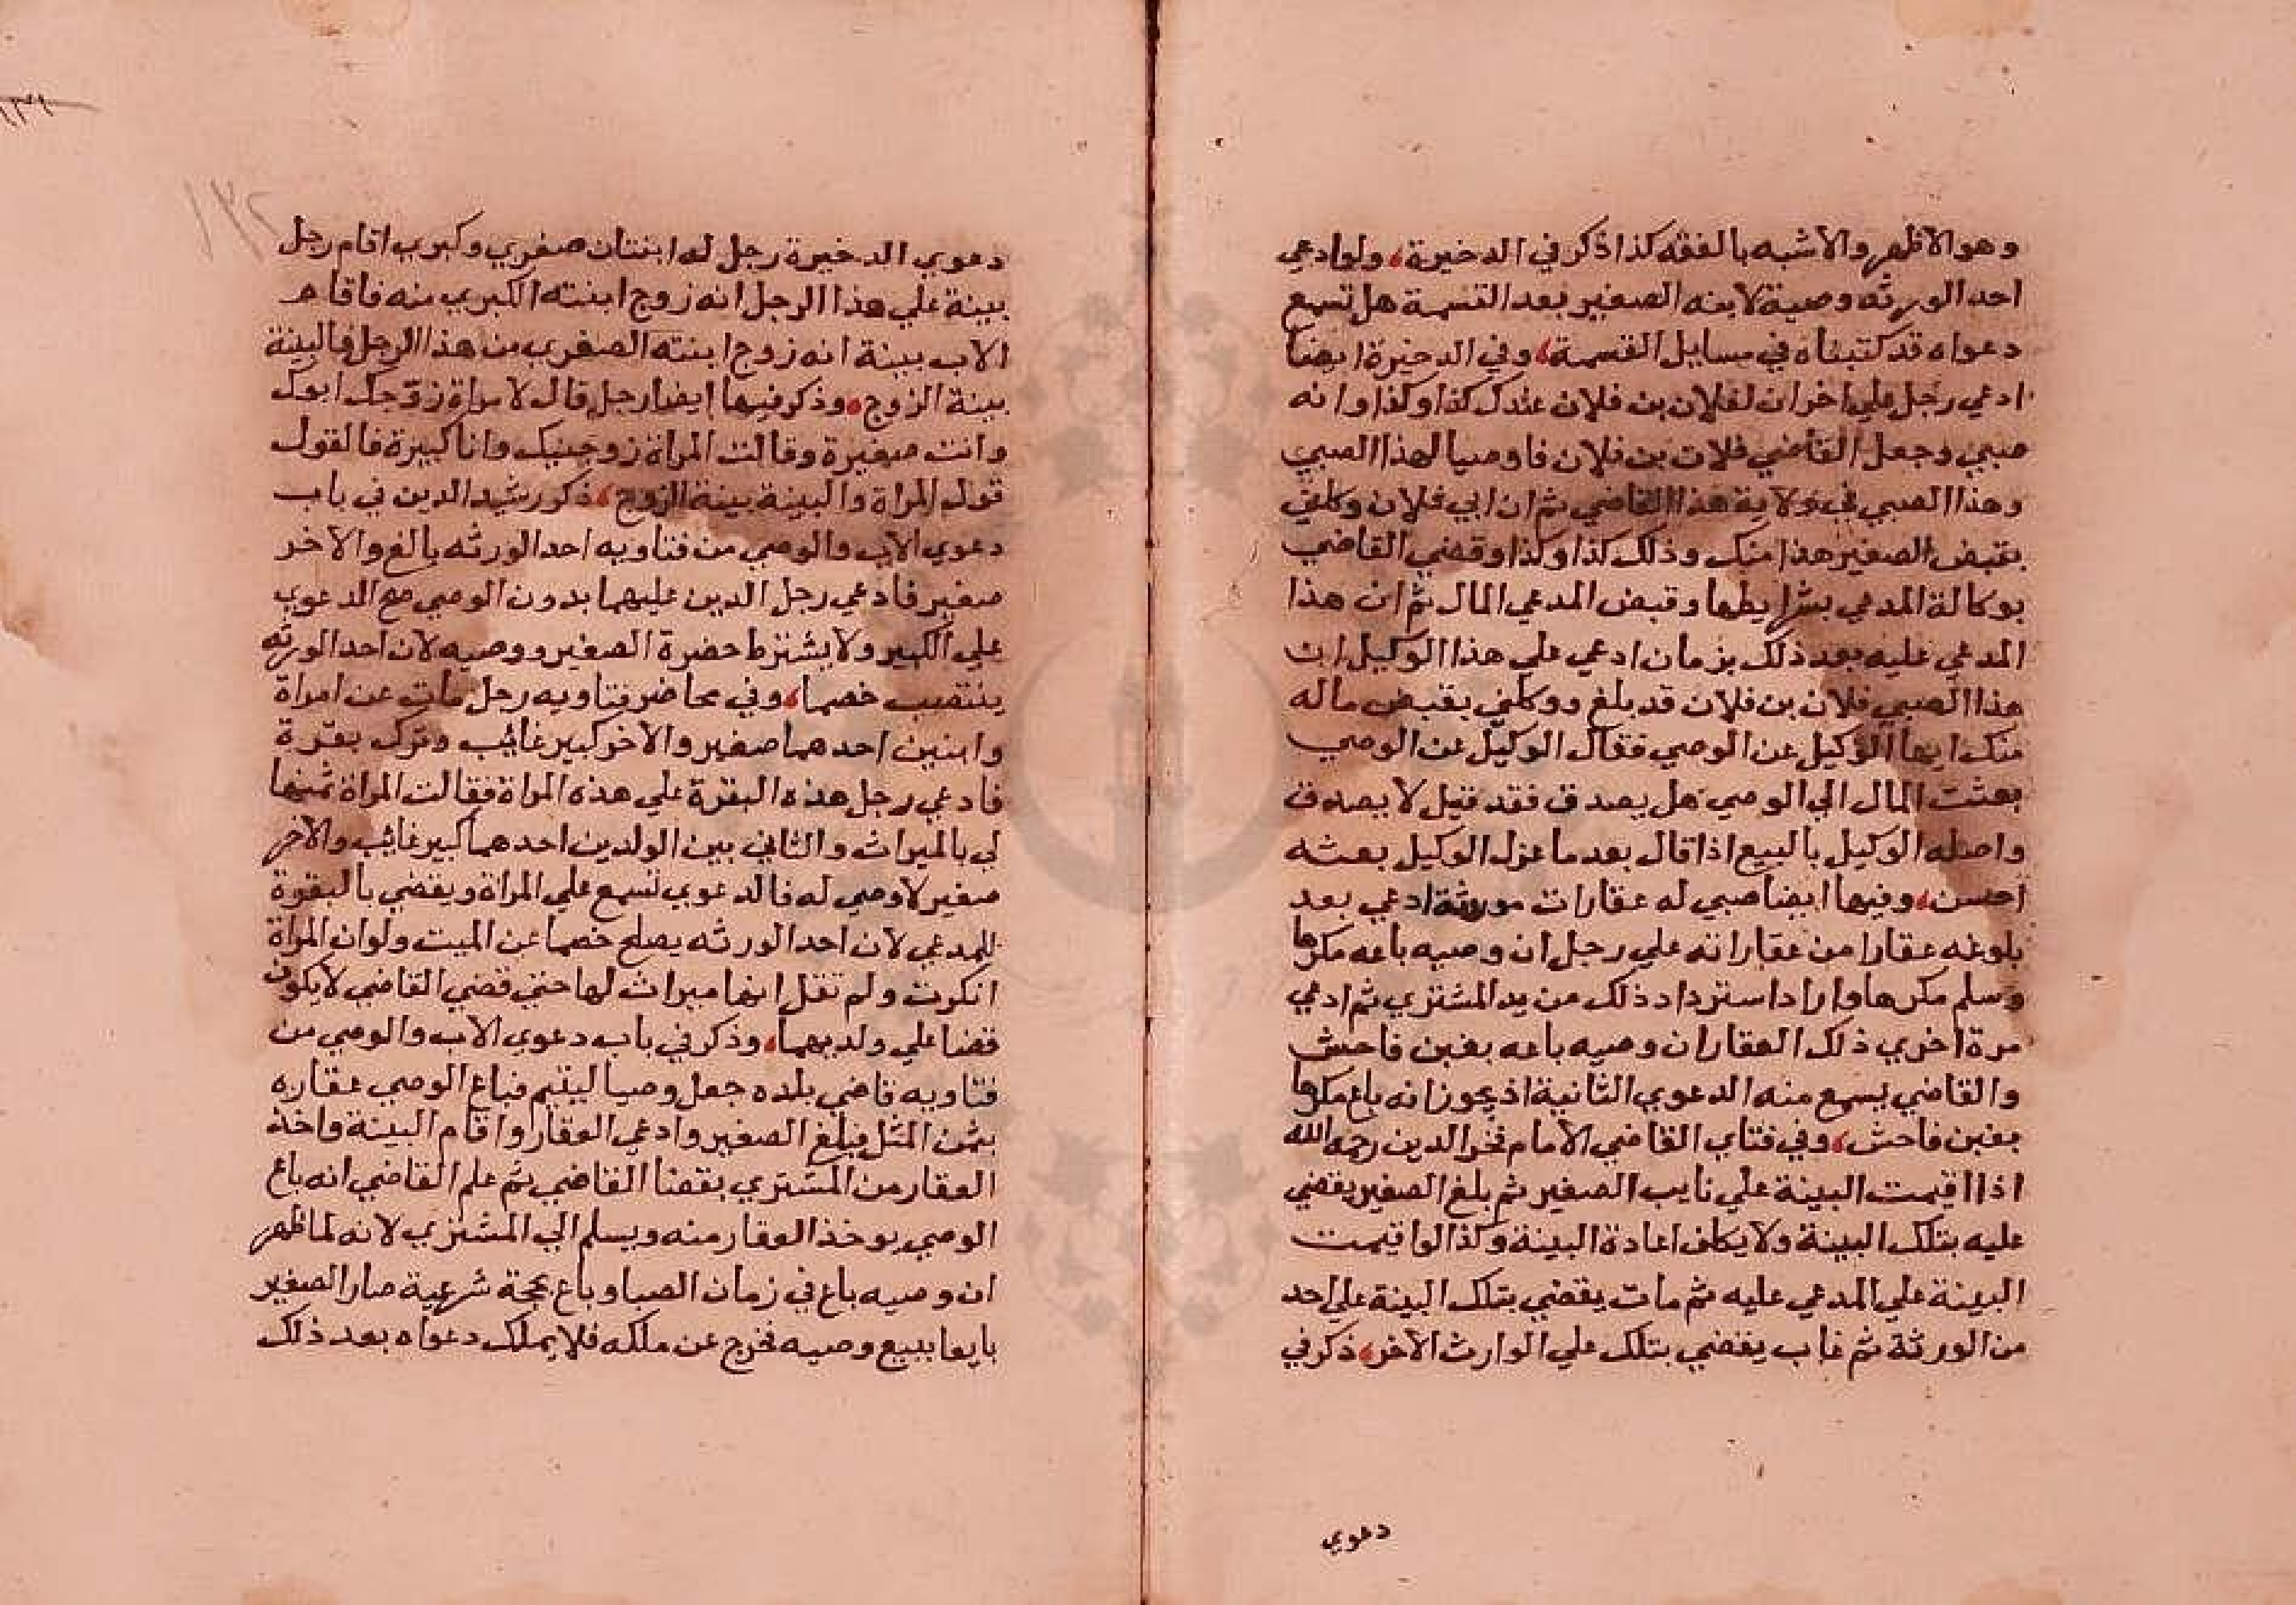 وهو الاظهر والاشبه بالفقه كذا ذكر في الدخيرة، ولو ادعي
احد الورثه وصية لابنه الصغير بعد القسمة هل تسمع
دعواه قد كتبناه في مسايل القسمة، وفي الدخيرة ايضا
ادعي رجل علي اخر ان لفلان بن فلان عندك كذا وكذا وانه
صبي وجعل القاضي فلان بن فلان فاوصيا لهذا الصبي
وهذا الصبي في ولاية هذا القاضي ثم ان ابي فلان وكلني
بقبض الصغير هذا منك وذلك كذا وكذا وقضي القاضي
بوكالة المدعي بشرايطها وقبض المدعي المال ثم ان هذا
المدعي عليه بعد ذلك بزمان ادعي علي هذا الوكيل ان
هذا الصبي فلان بن فلان قد بلغ ووكلني بقبض ماله
منك ايها الوكيل عن الوصي فقال الوكيل عن الوصي
بعثت المال الي الوصي هل يصدق فقد قيل لا يصدق
واصله الوكيل بالبيع اذا قال بعد ما عزل الوكيل بعثه
احسن، وفيها ايضا صبي له عقارات موروثة ادعي بعد
بلوغه عقارا من عقاراته علي رجل ان وصيه باعه مكرها
وسلم مكرها واراد استرداد ذلك من يد المشتري ثم ادعي
مرة اخري ذلك العقار ان وصيه باعه بغبن فاحش
والقاضي يسمع منه الدعوي الثانية اذ يجوز انه باع مكرها
بغبن فاحش، وفي فتاي القاضي الامام فخر الدين رحمه الله
اذا اقيمت البينة علي نايب الصغير ثم بلغ الصغير يقضي
عليه بتلك البينة ولا يكلف اعادة البينة وكذا لو اقيمت
البينة علي المدعي عليه ثم مات يقضي بتلك البينة علي احد
من الورثة ثم غاب يقضي بتلك علي الوارث الاخر، ذكر في
دعوي
١٣٢
دعوي الدخيرة رجل له ابنتان صغري وكبري اقام رجل
بينة علي هذا الرجل انه زوج ابنته الكبري منه فاقام
الاب بينة انه زوج ابنته الصغري من هذا الرجل فالبينة
بينة الزوج، وذكر فيها ايضا رجل قال لامراة زوجك ابوك
وانت صغيرة وقالت المراة زوجنيك وانا كبيرة فالقول
قول المراة والبينة بينة الزوج، ذكر رشيد الدين في باب
دعوي الاب والوصي من فتاويه احد الورثه بالغ والاخر
صغير فادعي رجل الدين عليهما بدون الوصي صح الدعوي
علي الكبير ولا يشترط حضرة الصغير ووصيه لان احد الورثه
ينتصب خصما، وفي محاضر فتاويه رجل مات عن امراة
وابنين احدهما صغير والاخر كبير غائب وترك بقرة
فادعي رجل هذه البقرة علي هذه المراة فقالت المراة ثمنها
لي بالميراث والثاني بين الولدين احدهما كبير غائب والاخر
صغير لاوصي له فالدعوي تسمع علي المراة ويقضي بالبقرة
للمدعي لان احد الورثه يصلح خصما عن الميت ولو ان المراة
انكرت ولم تقل انها ميراث لها حتي قضي القاضي لا يكون
قضا علي ولديهما، وذكر في باب دعوي الاب والوصي من
فتاويه قاضي بلده جعل وصيا ليتيم فباع الوصي عقاره
بثمن المثل فبلغ الصغير وادعي العقار واقام البينة واخذ
العقار من المشتري بقضا القاضي ثم علم القاضي انه باع
الوصي يوخذ العقار منه ويسلم الي المشتري لانه لما ظهر
ان وصيه باع في زمان الصبا وباع بحجة شرعية صار الصغير
بايعا ببيع وصيه فخرج عن ملكه فلا يملك دعواه بعد ذلك